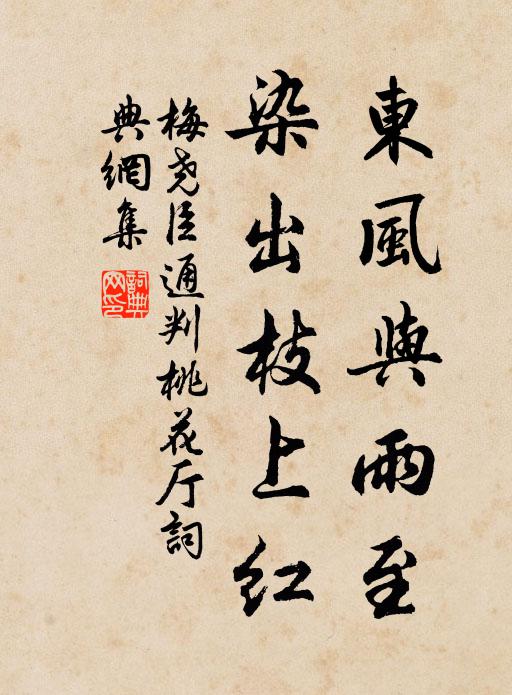 東風與雨至
染出枝上紅
梅尧臣通判桃花厅詞
典網集
詞典
网印